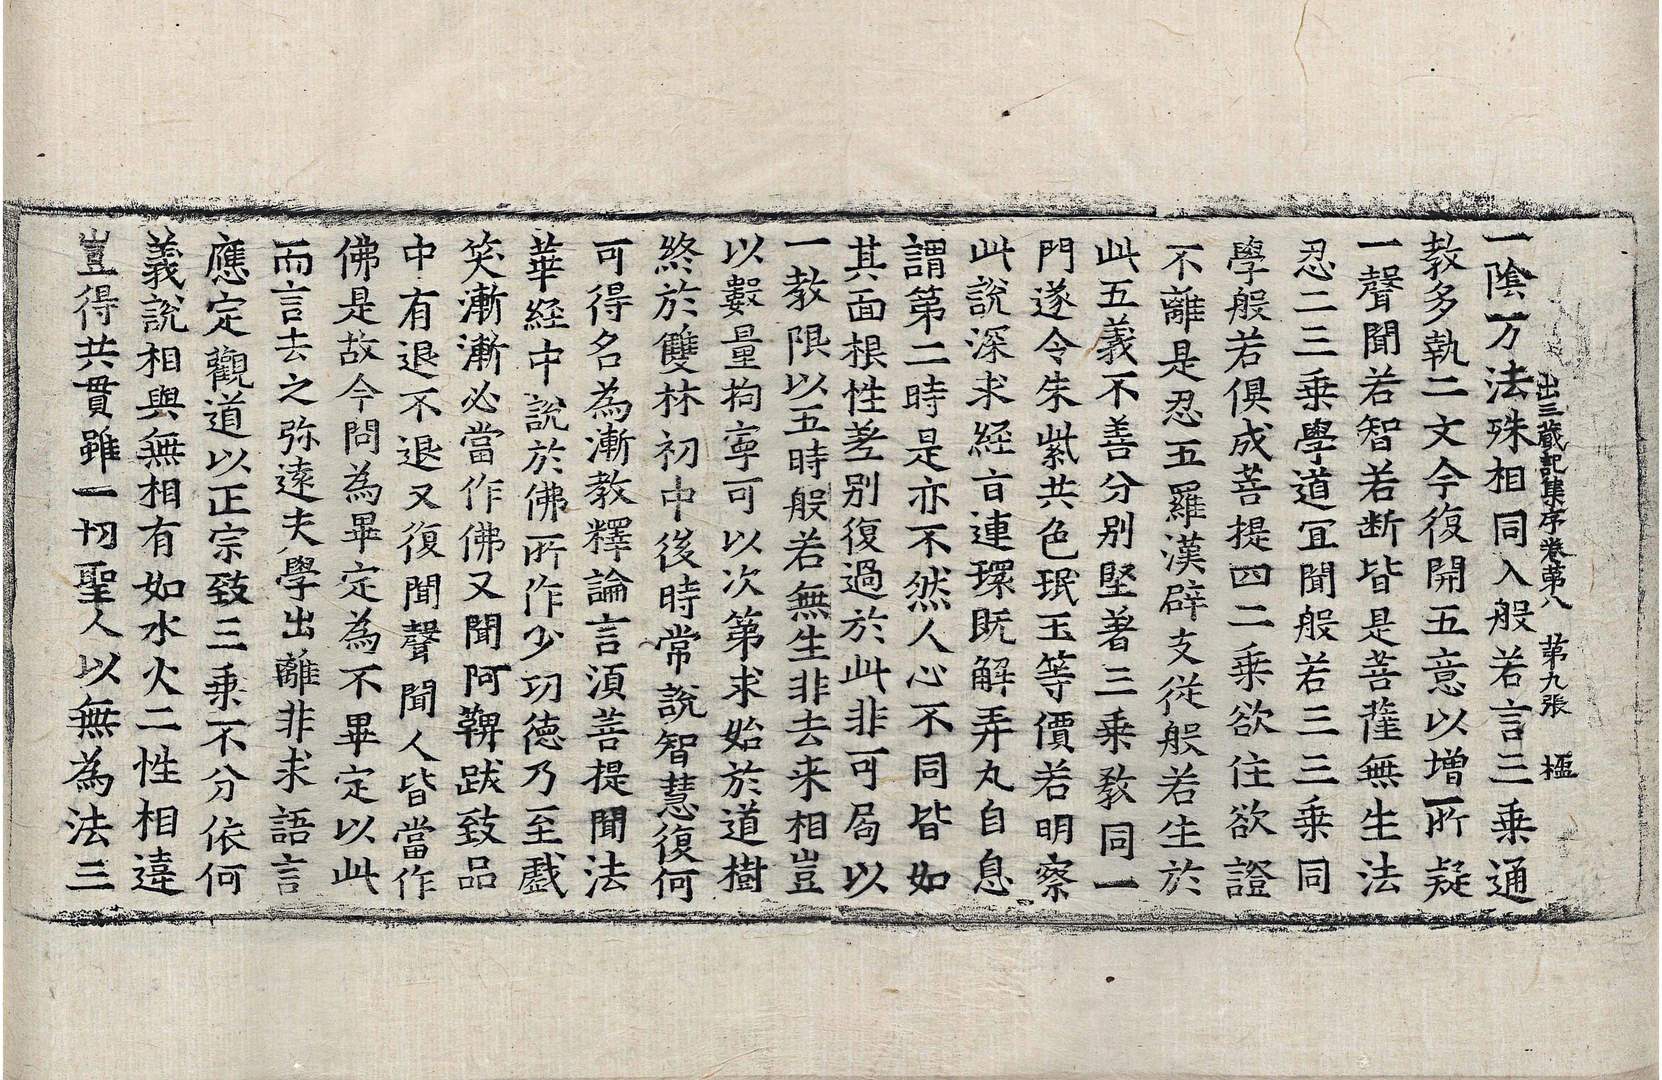 出三藏記集序卷第八 第九張 楹
一陰万法殊相同入般若言三乘通
教多執二文今復開五意以增所疑
一聲聞若智若断皆是菩薩無生法
忍二三乘學道冝聞般若三三乘同
學般若俱成菩提四二乘欲住欲證
不離是忍五羅漢辟支從般若生於
此五義不善分别堅著三乘教同一
門遂令朱紫共色珉玉等價若明察
此說深求經旨連環既解弄丸自息
謂第二時是亦不然人心不同皆如
其面根性差别復過於此非可局以
一教限以五時般若無生非去来相豈
以數量拘寧可以次第求始於道樹
終於雙林初中後時常說智慧復何
可得名為漸教釋論言湏菩提聞法
華経中說於佛所作少功德乃至戲
笑漸漸必當作佛又聞阿鞞跋致品
中有退不退又復聞聲聞人皆當作
佛是故今問為畢定為不畢定以此
而言去之弥遠夫學出離非求語言
應定觀道以正宗致三乘不分依何
義說相與無相有如水火二性相違
豈得共貫雖一切聖人以無為法三